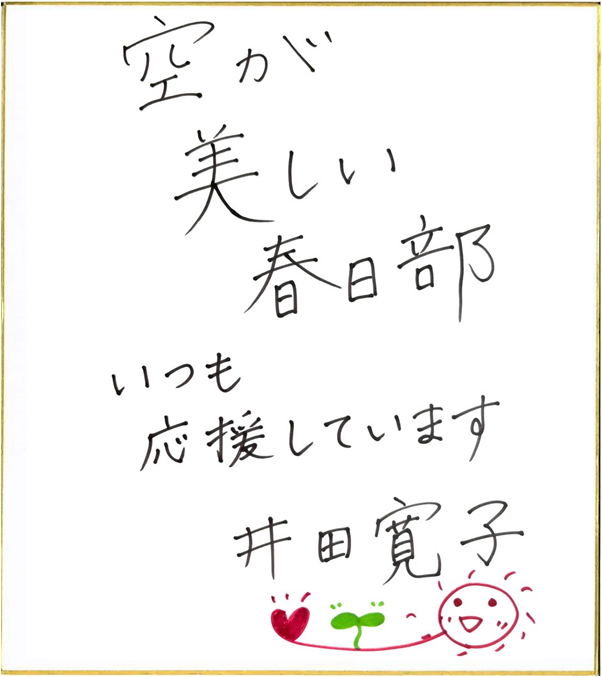 空が
美しい
春日部
いつも
応援しています
井田寛子